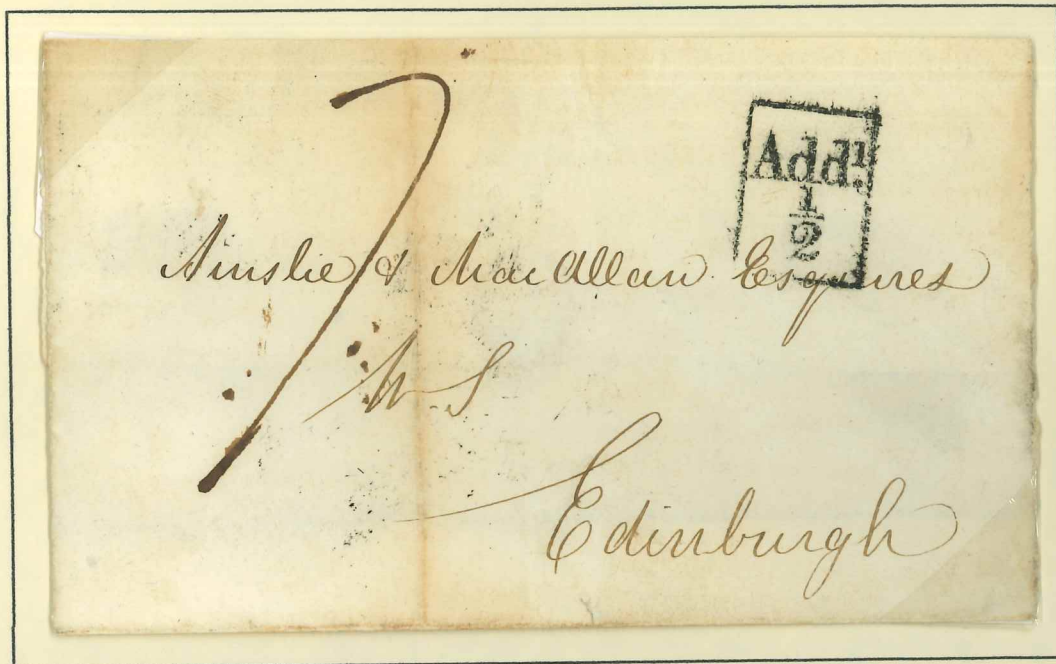 7
Addl.
1/2
Ainslie & MacAllan Esquires
W S
Edinburgh